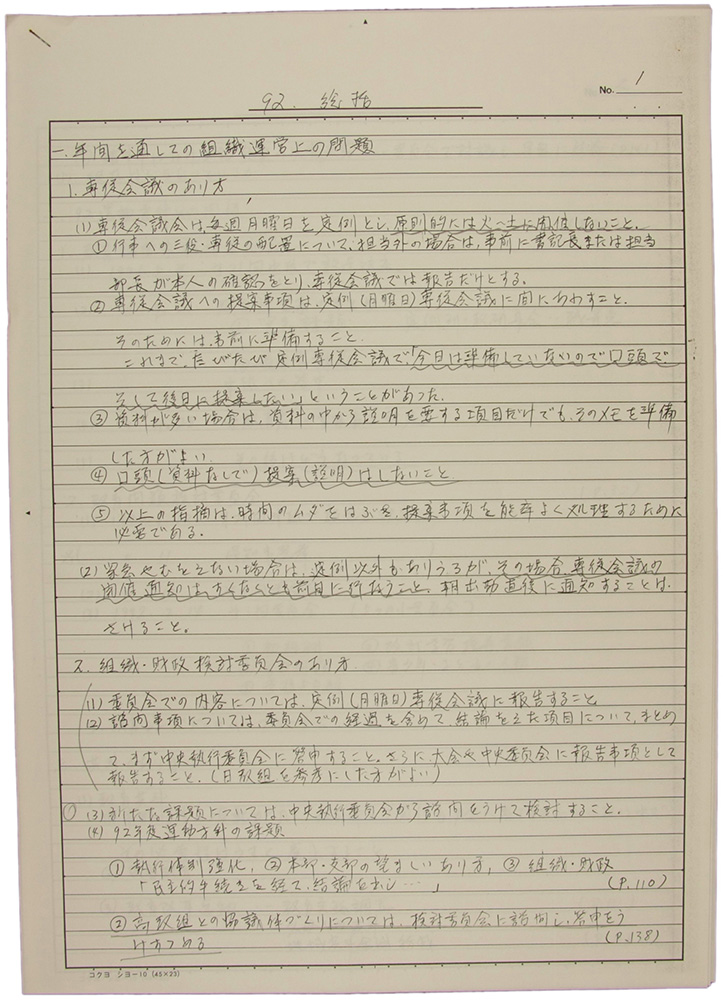 No. 1
92. 総括
一. 年間を通しての組織運営上の問題
1. 専従会議のあり方
(1) 専従会議会は、毎週月曜日を定例とし、原則的には火〜土に開催しないこと。
① 行事への三役・専従の配置について、担当外の場合は、事前に書記長または担当
部長が本人の確認をとり、専従会議では報告だけとする。
② 専従会議への提案事項は、定例(月曜日)専従会議に間にあわすこと。
そのためには、事前に準備すること。
これまで、たびたび定例専従会議で「今日は準備していないので口頭で
そして後日に提案したい」ということがあった。
③ 資料が多い場合は、資料の中から説明を要する項目だけでも、そのメモを準備
した方がよい
④ 口頭(資料なしで)提案(説明)はしないこと
⑤ 以上の指摘は、時間のムダをはぶき、提案事項を能率よく処理するために
必要である。
(2) 緊急やむをえない場合は、定例以外もありうるが、その場合、専従会議の
開催通知は、すくなくとも前日に行なうこと。朝出勤直後に通知することは、
さけること。
2. 組織・財政検討委員会のあり方
(1) 委員会での内容については、定例(月曜日)専従会議に報告すること
(2) 諮問事項については、委員会での経過を含めて、結論をえた項目について、まとめ
て、まず中央執行委員会に答申すること。さらに大会や中央委員会に報告事項として
報告すること。(日教組を参考にした方がよい)
(3) 新たな課題については、中央執行委員会から諮問をうけて検討すること。
(4) 92年度運動方針の課題
① 執行体制強化、② 本部・支部の望ましいあり方、③ 組織・財政
「民主的手続きを経て、結論を出し…」 (P.110)
② 高教組との協議体づくりについては、検討委員会に諮問し、答申をう
けすすめる (P.138)
コクヨ シヨ-10 (45×23)